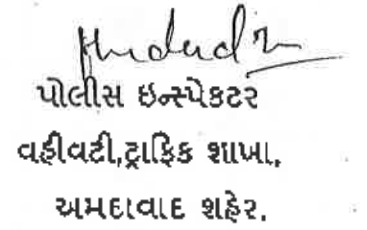 પોલીસ ઇન્સ્પેકટર
વહીવટી,ટ્રાફિક શાખા,
અમદાવાદ શહેર.